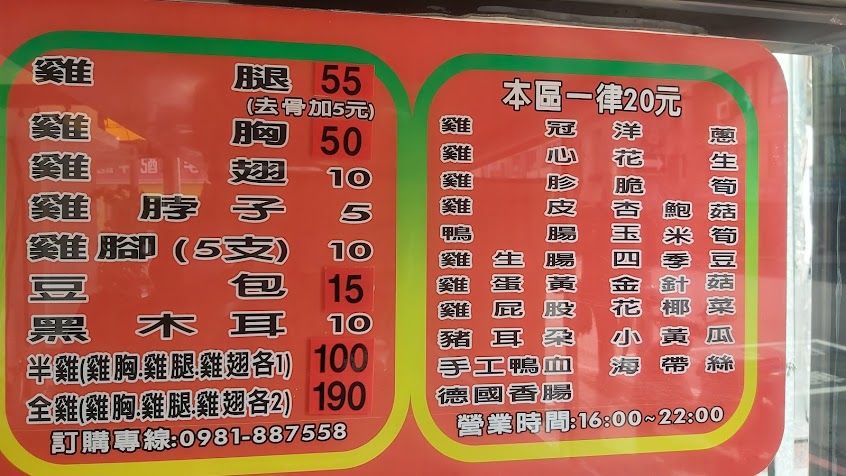 雞腿 55
(去骨加5元)
雞胸 50
雞翅 10
雞脖子 5
雞腳(5支) 10
豆包 15
黑木耳 10
半雞(雞胸.雞腿.雞翅各1) 100
全雞(雞胸.雞腿.雞翅各2) 190
訂購專線:0981-887558
本區一律20元
雞冠 洋蔥
雞心 花生
雞胗 脆筍
雞皮 杏鮑菇
鴨腸 玉米筍
雞生腸 四季豆
雞蛋黃 金針菇
雞屁股 花椰菜
豬耳朵 小黃瓜
手工鴨血 海帶絲
德國香腸
營業時間:16:00~22:00